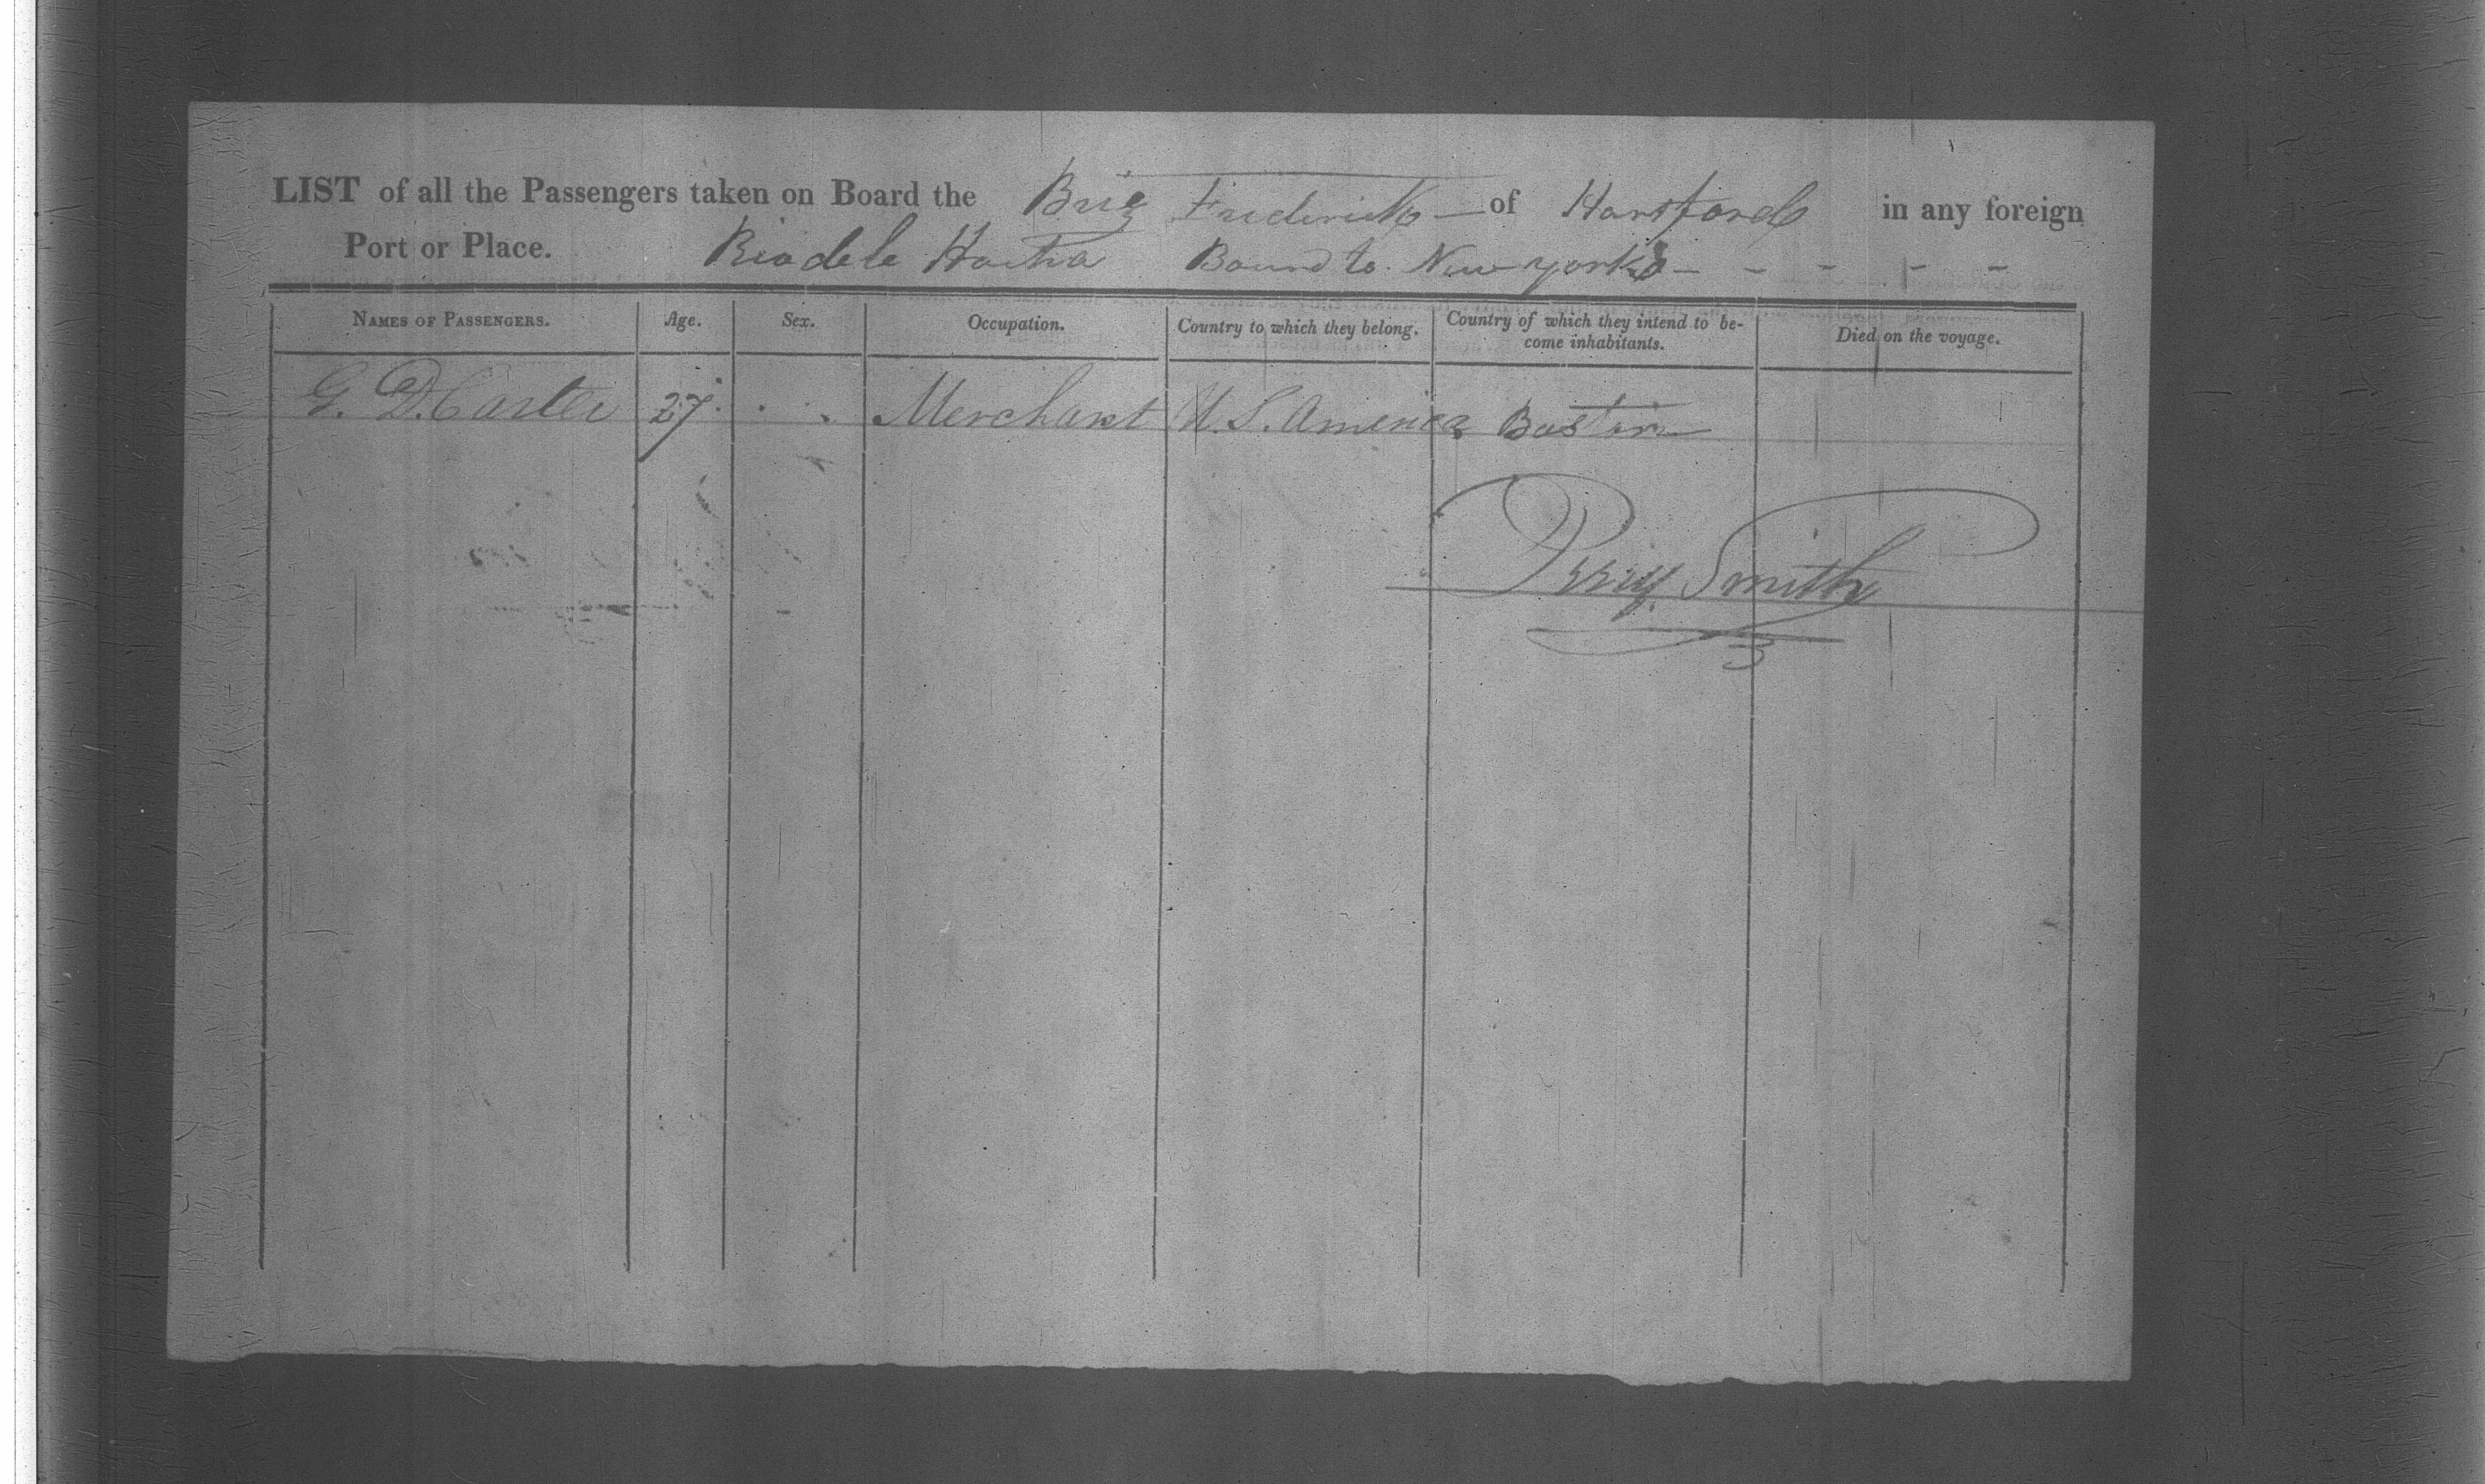 LIST of all the Passengers taken on Board the Brig Frederick of Hartford in any foreign
Port or Place. Riodele Hacha Bound to New york
NAMES OF PASSENGERS. Age. Sex. Occupation. Country to which they belong. Country of which they intend to be-come inhabitants. Died on the voyage.
G. D. Carter 27 Merchant U. S. America Boston
Perry Smith